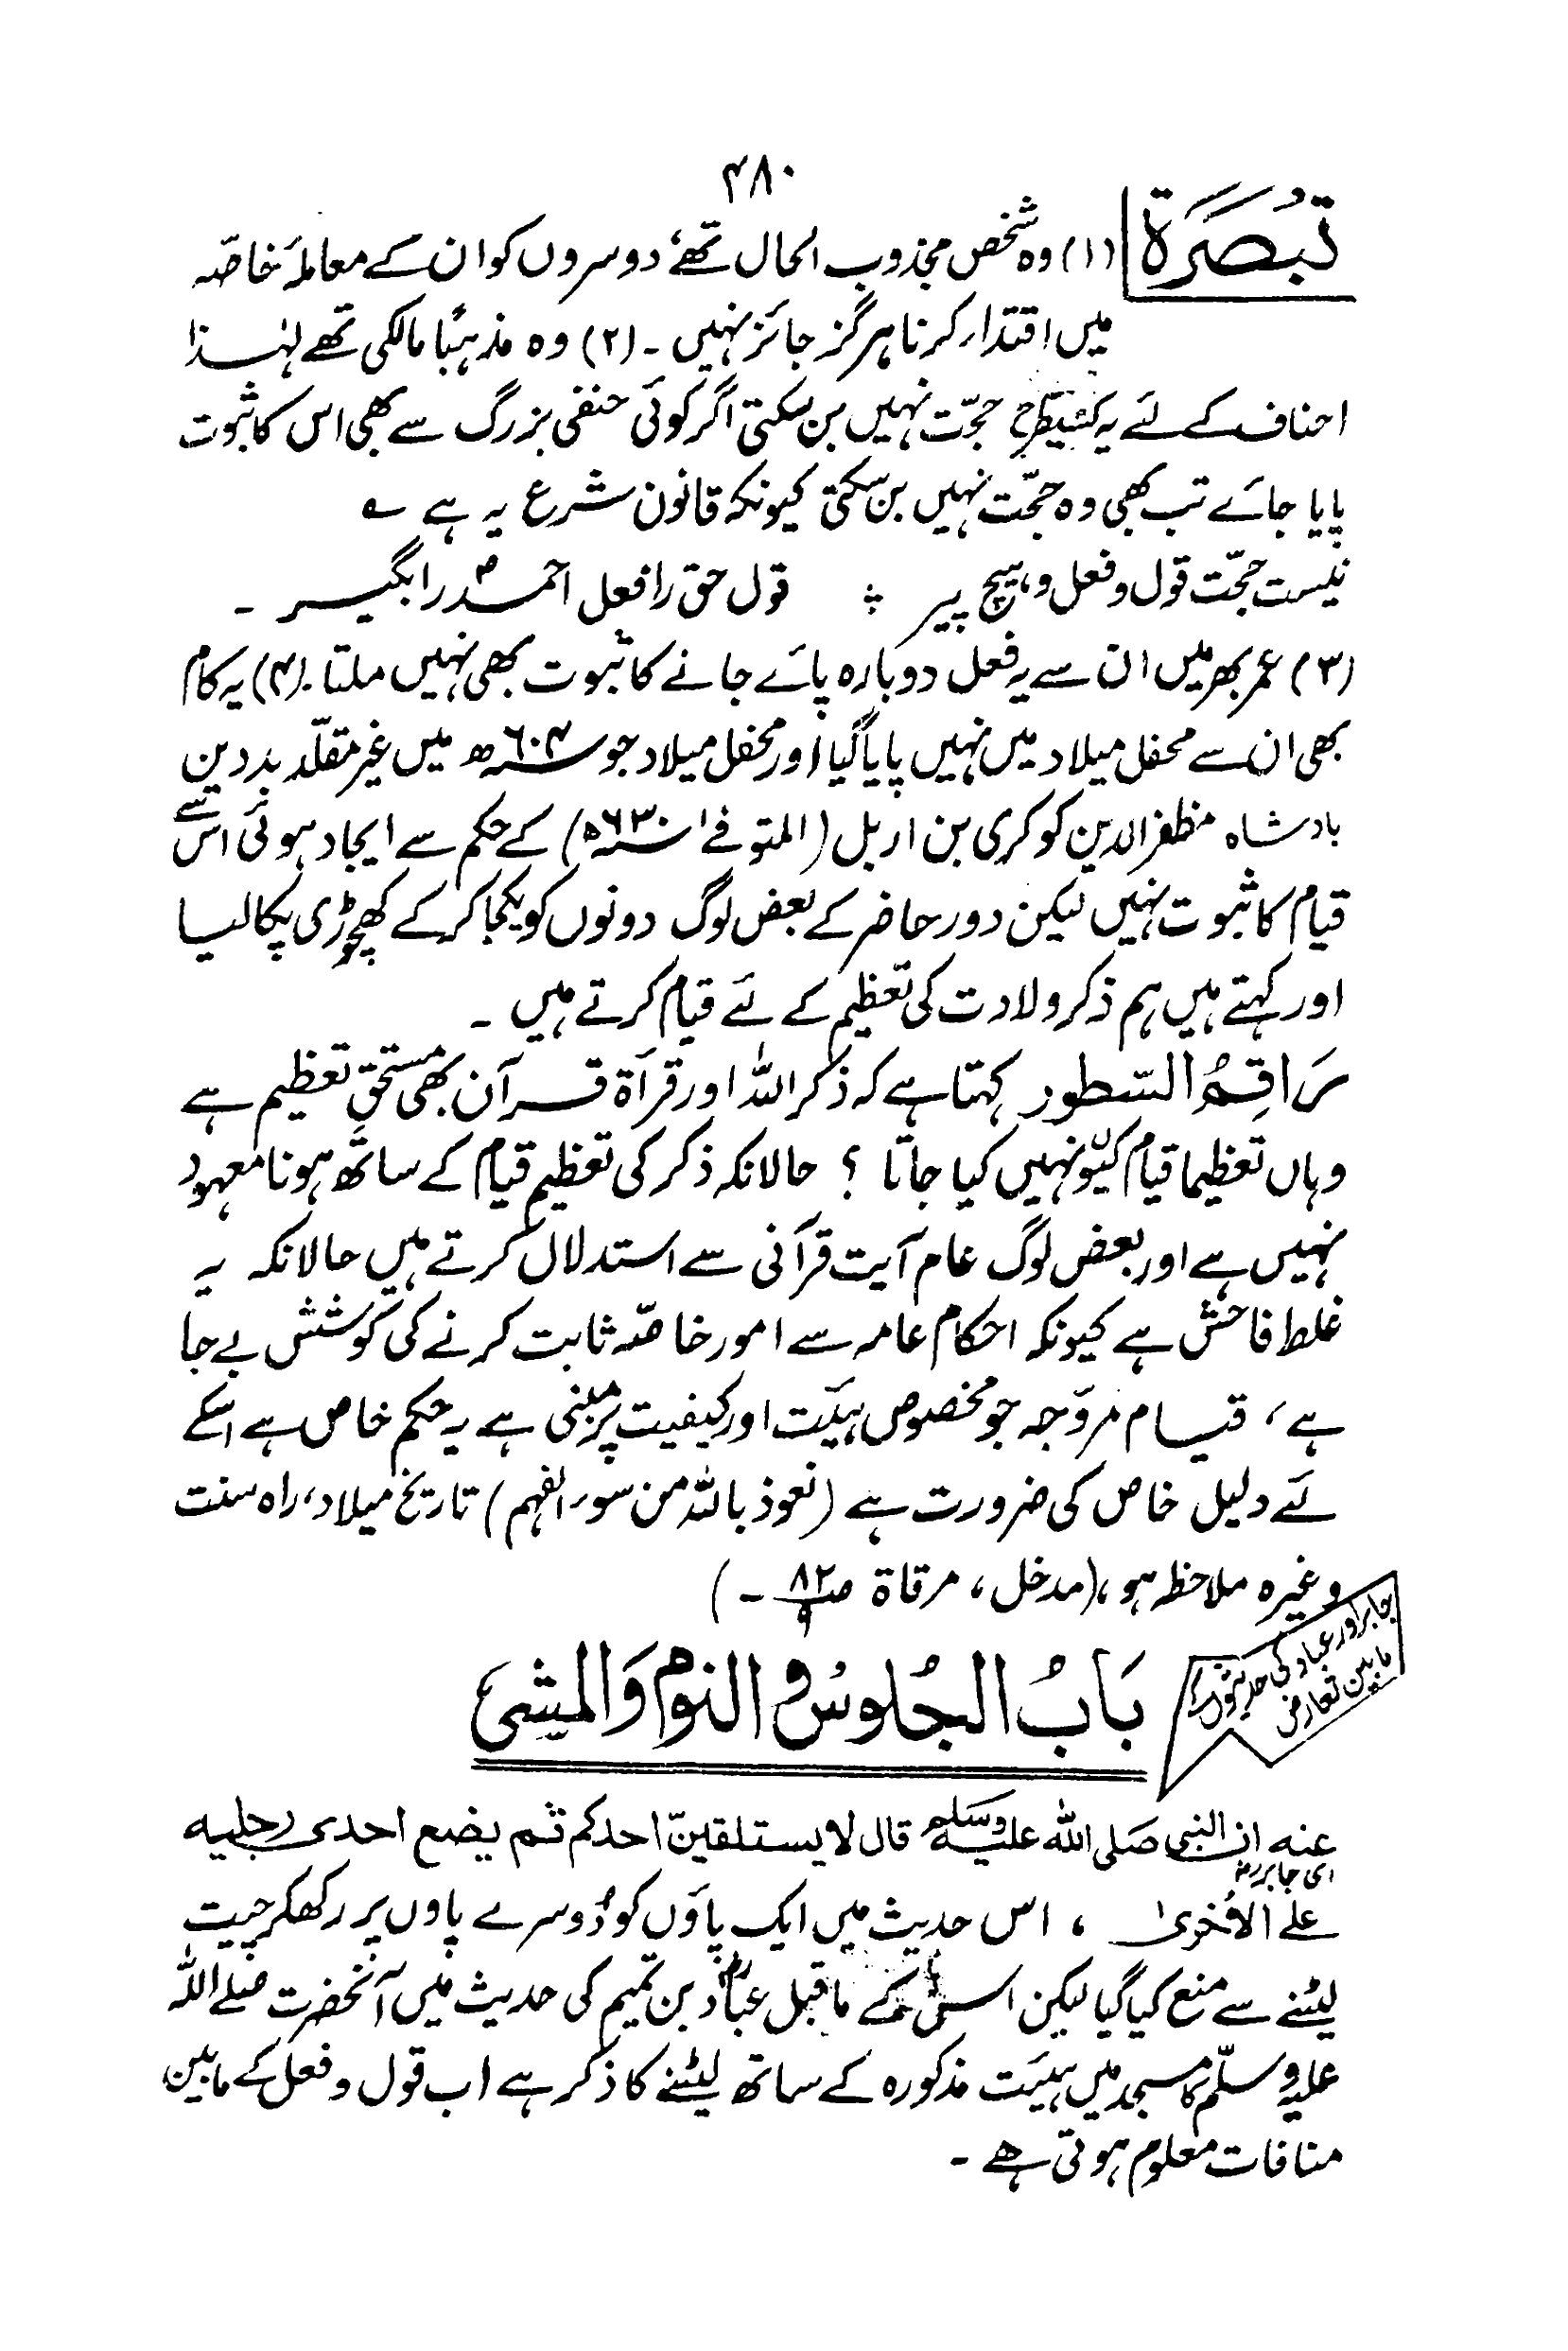 ۴۸۰
تبصرة (۱) وہ شخص مجذوب الحال تھے، دوسروں کو ان کے معاملۂ خاصّہ
میں اقتداء کرنا ہرگز جائز نہیں ۔ (۲) وہ مذہبًا مالکی تھے لہٰذا
احناف کے لئے یہ کسیطرح حجّت نہیں بن سکتی اگر کوئی حنفی بزرگ سے بھی اس کا ثبوت
پایا جائے تب بھی وہ حجّت نہیں بن سکتی کیونکہ قانون شرع یہ ہے ؎
نیست حجّت قول و فعل و ہیچ پیر ؞ قول حق را فعل احمدؐ را بگیر ۔
(۳) عمر بھر میں ان سے یہ فعل دوبارہ پائے جانے کا ثبوت بھی نہیں ملتا ۔ (۴) یہ کام
بھی ان سے محفل میلاد میں نہیں پایا گیا اور محفل میلاد جو ۶۰۴ھ میں غیر مقلّد بددین
بادشاہ مظفر الدین کوکری بن اربل (المتوفےٰ ۶۳۰ھ) کے حکم سے ایجاد ہوئی اس سے
قیام کا ثبوت نہیں لیکن دور حاضر کے بعض لوگ دونوں کو یکجا کر کے کھچڑی پکا لیا
اور کہتے ہیں ہم ذکر ولادت کی تعظیم کے لئے قیام کرتے ہیں ۔
رَاقِمُ السّطور کہتا ہے کہ ذکر اللہ اور قرآۃ قرآن بھی مستحقِ تعظیم ہے
وہاں تعظیما قیام کیوں نہیں کیا جاتا ؟ حالانکہ ذکر کی تعظیم قیام کے ساتھ ہونا معہود
نہیں ہے اور بعض لوگ عام آیت قرآنی سے استدلال کرتے ہیں حالانکہ یہ
غلط فاحش ہے کیونکہ احکام عامہ سے امور خاصّہ ثابت کرنے کی کوشش بے جا
ہے، قیام مروّجہ جو مخصوص ہیئت اور کیفیت پر مبنی ہے یہ حکم خاص ہے اسکے
لئے دلیل خاص کی ضرورت ہے (نعوذ باللہ من سوء الفہم) تاریخ میلاد، راہ سنت
وغیرہ ملاحظہ ہو، (مدخل، مرقاۃ صـ ۸۲/۹ ـ)
جابر اور عباد کی حدیثوں کے
مابین تعارض
بَابُ الجُلوسُ و النوم وَالمشیَ
عنه ان النبی صَلی اللہ علیہ وسلم قال لا یستلقینّ احدکم ثم یضع احدی رجلیه
ای جابر رض
علے الاُخریٰ ، اس حدیث میں ایک پاؤں کو دُوسرے پاوں پر رکھکر چیت
لیٹنے سے منع کیا گیا لیکن اس کے ماقبل عبادؓ بن تمیم کی حدیث میں آنحضرت صلے اللہ
علیہ وسلّم کا مسجد میں ہیئت مذکورہ کے ساتھ لیٹنے کا ذکر ہے اب قول و فعل کے مابین
منافات معلوم ہوتی ہے ۔